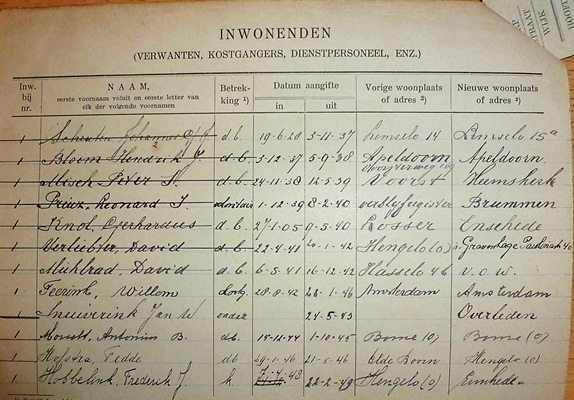 INWONENDEN
(VERWANTEN, KOSTGANGERS, DIENSTPERSONEEL, ENZ.)
Inw. bij nr. NAAM, eerste voornaam voluit en eerste letter van elk der volgende voornamen Betrekking ¹) Datum aangifte in uit Vorige woonplaats of adres ²) Nieuwe woonplaats of adres ²)
1 Scheuten Johannes G J d.b. 19-6-28 3-11-37 Lemselo 14 Lemselo 15a
1 Bloem Hendrik J d.b. 3-12-37 5-9-38 Apeldoorn Apeldoorn
1 Misch Peter S. d.b. 24-11-38 12-5-39 Voorst Heemskerk
1 Prinz, Leonard J. 1-12-39 8-2-40 verblyfregister Brummen
1 Knol, Gerhardus d.b. 27-1-05 9-5-40 Losser Enschede
1 Verliebter, David d.b. 22-4-41 -1-42 Hengelo (o) s-Gravenhage
1 Mühlrad, David d.b. 6-5-41 16-12-42 Hasselo 46 v.o.w.
1 Teerink, Willem 28-8-42 -1-46 Amsterdam Amsterdam
1 Sneuverink Jan W vader 24-5-43 Overleden
1 Antonius B. d.b. 15-11-44 1-10-45 Borne (o) Borne (o)
1 Hofstra, Tedde d.b. 29-1-46 21-5-46 Hengelo (o)
1 Hobbelink, Frederik J. k 22-2-49 Hengelo (o) Enschede